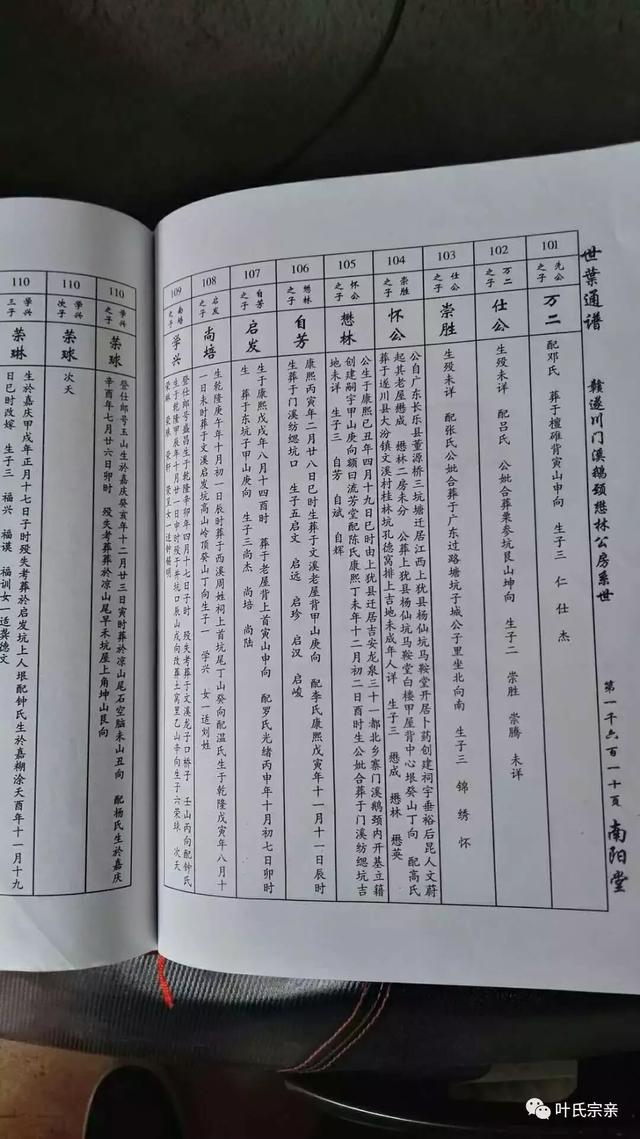 世叶通谱
赣遂川门溪鹅颈懋林公房系世
第一千六百一十页
南阳堂
101
先公之子
万二
配邓氏 葬于檀碓背寅山申向 生子三 仁 仕 杰
102
万二之子
仕公
生殁未详 配吕氏 公妣合葬粟参坑艮山坤向 生子二 崇胜 崇腾 未详
103
仕公之子
崇胜
生殁未详 配张氏公妣合葬于广东过路塘坑子城公子里坐北向南 生子三 锦 绣 怀
104
崇胜之子
怀公
公自广东长乐县董源桥三坑塘迁居江西上犹县杨仙坑马鞍堂开居卜药创建祠宇垂裕后昆人文蔚
起其老屋懋成 懋林二房未分 公葬上犹县杨仙坑马鞍堂白楼甲屋背中心垠癸山丁向 配高氏
葬于遂川县大汾镇文溪村桂林坑孔德窝排上吉地未成年人详 生子三 懋成 懋林 懋英
105
怀公之子
懋林
公生于康熙已丑年四月十九日巳时由上犹县迁居吉安龙泉三十一都北乡寨门溪鹅颈内开基立籍
创建嗣宇甲山庚向额曰流芳堂配陈氏康熙丁未年十二月初二日酉时生公妣合葬于门溪纺缌坑吉
地未详 生子三 自芳 自斌 自辉
106
懋林之子
自芳
康熙丙寅年二月廿八日巳时生葬于文溪老屋背甲山庚向 配李氏康熙戊寅年十一月十一日辰时
生葬于门溪纺缌坑口 生子五启文 启远 启珍 启汉 启峻
107
自芳之子
启发
生于康熙戊戌年八月十四酉时 葬于老屋背上首寅山申向 配罗氏光绪丙申年十月初七日卯时
生 葬于东坑子甲山庚向 生子三尚杰 尚培 尚陆
108
启发之子
尚培
生乾隆庚午年十月初一日辰时葬于西溪周姓祠上首坑尾丁山癸向配温氏生于乾隆戊寅年八月十
一日未时葬于文溪启发坑高山岭顶癸山丁向生子一 学兴 女一适刘姓
109
尚培之子
学兴
登仕郎号盛昌生于乾隆辛卯年四月十七日子时 殁失考葬于文溪龙子口桥子 壬山丙向配钟氏
生于乾隆甲辰年十月廿一日申时殁于井坑口辰山戌向改葬土窝里乙山辛向生子六荣球 次夭
荣琳 荣琅 荣轩 荣卫女一适钟锡明
110
学兴之子
荣球
登仕郎号玉山生於嘉庆癸亥年十二月廿三日寅时葬於凉山尾石空脑未山丑向 配杨氏生於嘉庆
辛酉年七月廿六日卯时 殁失考葬葬於凉山尾早禾坑屋上角坤山艮向
110
学兴次子
荣球
次夭
110
学兴三子
荣琳
生於嘉庆甲戌年正月十七日子时殁失考葬於启发坑上人垠配钟氏生於嘉糊涂天酉年十一月十九
日巳时改嫁 生子三 福兴 福谟 福训女一适龚德文
叶氏宗亲